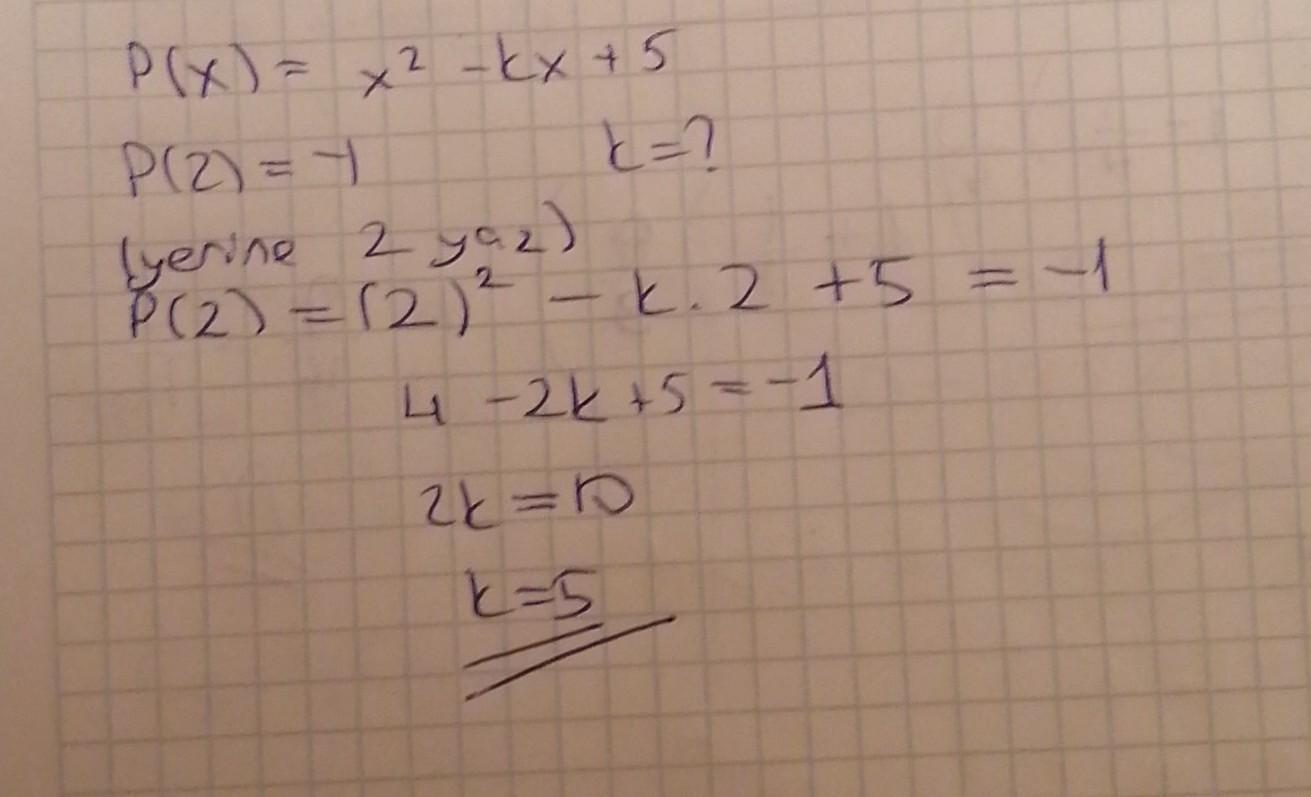 P(x) = x² - kx + 5
P(2) = -1 k = ?
(yerine 2 yaz)
P(2) = (2)² - k . 2 + 5 = -1
4 - 2k + 5 = -1
2k = 10
k = 5